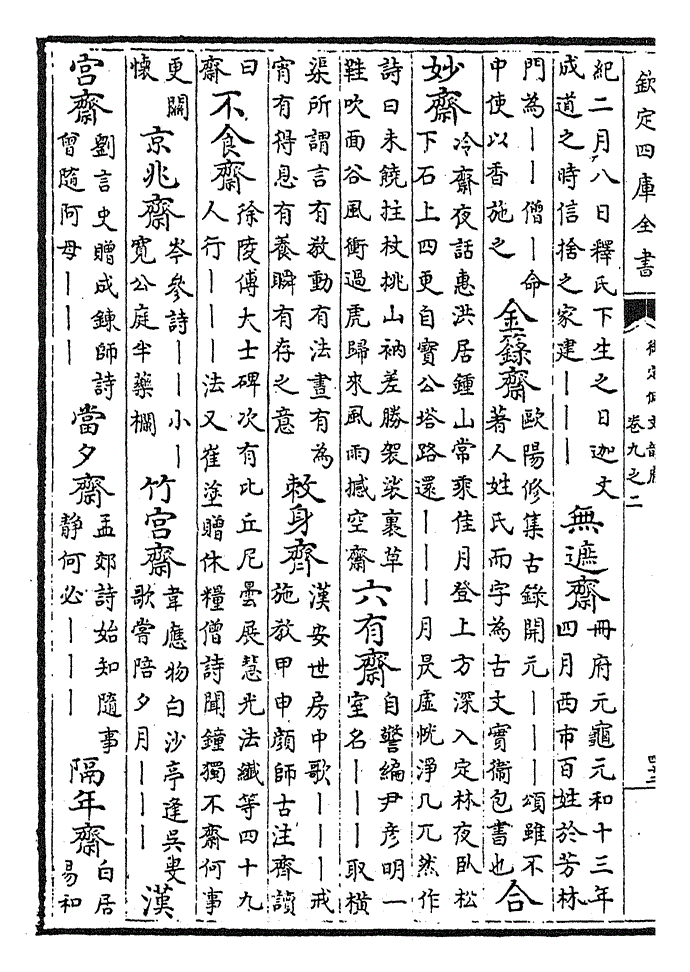 欽定四庫全書
御定佩文韻府
卷九之二
紀二月八日釋氏下生之日迦文
成道之時信捨之家建－－－
無遮齋
冊府元龜元和十三年
四月西市百姓於芳林
門為－－僧－命
中使以香施之
金籙齋
歐陽修集古錄開元－－－頌雖不
著人姓氏而字為古文實衞包書也
合
妙齋
冷齋夜話惠洪居鍾山常乘佳月登上方深入定林夜臥松
下石上四更自寶公塔路還－－－－月昃虛恍淨几兀然作
詩曰未饒拄杖挑山衲差勝袈裟裹草
鞋吹面谷風衝過虎歸來風雨撼空齋
六有齋
自警編尹彦明一
室名－－－取橫
渠所謂言有教動有法晝有為
宵有得息有養瞬有存之意
敕身齊
漢安世房中歌－－－戒
施教甲申顔師古注齊讀
曰
齋
不食齋
徐陵傅大士碑次有比丘尼曇展慧光法纖等四十九
人行－－－法又崔塗贈休糧僧詩聞鐘獨不齋何事
更關
懷
京兆齋
岑參詩－－小－
寛公庭半藥欄
竹宫齋
韋應物白沙亭逢吳叟
歌嘗陪夕月－－－
漢
宫齋
劉言史贈成鍊師詩
曾隨阿母－－－
當夕齋
孟郊詩始知隨事
静何必－－－
隔年齋
白居
易和